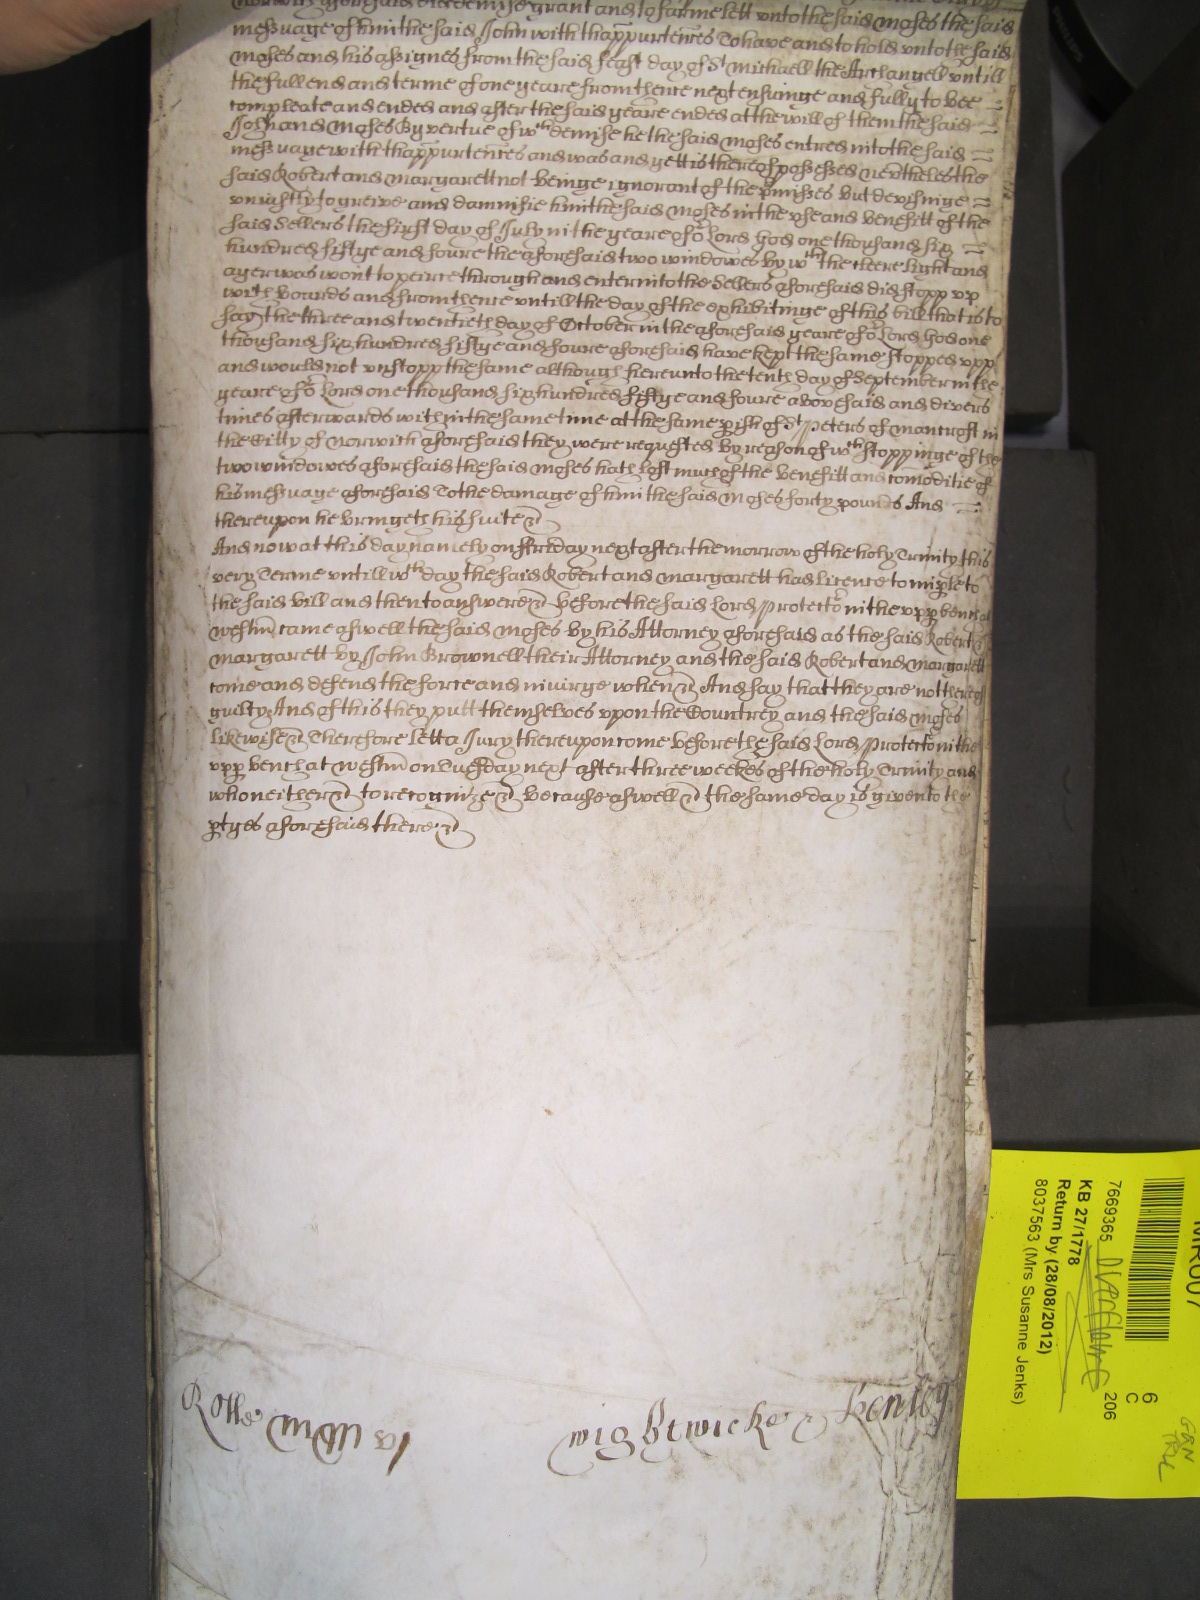 Norwich aforesaid did demise grant and to farme lett unto the said Moses the said
messuage of him the said John with thappurtences To have and to hold unto the said
Moses and his assignes from the said feast day of St Michaell the Archangell untill
the full end and terme of one yeare from thence next ensuinge and fully to bee
compleate and ended and after the said yeare ended at the will of them the said
John and Moses By vertue of wch demise he the said Moses entred into the said
messuage with thappurtences and was and yett is thereof possessed nevertheles the
said Robert and Margarett not beinge ignorant of the pmisses but devisinge
uniustly to greive and damnifie him the said Moses in the use and benefitt of the
said Sellers the first day of July in the yeare of or Lord God one thousand six
hundred fiftye and foure the aforesaid two windowes by wch the cleere light and
ayer was wont to peirce through and enter into the Sellers aforesaid did stopp up
with boards and from thence untill the day of the exhibitinge of this bill that is to
say the three and twentieth day of October in the aforesaid yeare of or Lord God one
thousand six hundred fiftye and foure aforesaid have kept the same stopped upp
and would not unstopp the same although hereunto the tenth day of September in the
yeare of or Lord one thousand six hundred fiftye and foure abovesaid and divers
times afterwards within the same time at the same pish of St Peters of Mancroft in
the Citty of Norwich aforesaid they were requested by reason of wch stoppinge of the
two windowes aforesaid the said Moses hath lost much of the benefitt and comoditie of
his messuage aforesaid To the damage of him the said Moses forty pounds And
thereupon he bringeth his suite &c
And now at this day namely on ffriday next after the morrow of the holy Trinity this
very Terme untill wch day the said Robert and Margarett had licence to imple to
the said bill and then to answere &c before the said Lord Protector in the upp bench at
Westm came aswell the said Moses by his Attorney aforesaid as the said Robert &
Margarett by John Brownell their Attorney and the said Robert and Margarett
come and defend the force and iniurye when &c And say that they are not thereof
guilty And of this they putt themselves upon the Countrey and the said Moses
likewise &c Therefore lett a Jury thereupon come before the said Lord Protector in the
upp bench at Westm on Tuesday next after three weekes of the holy Trinity and
who neither &c to recognize &c because aswell &c the same day is given to the
ptyes aforesaid there &c
Rolle
Wightwicke &
MR007
6
C
206
7669365
KB 27/1778
Return by (28/08/2012)
8037563 (Mrs Susanne Jenks)